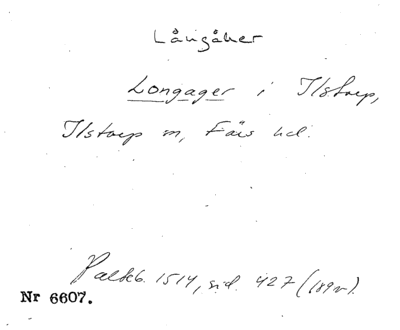 Långåker
Longager i Ilstorp,
Ilstorp sn, Färs hd.
Palteb. 1514, sid. 427 (189v).
Nr 6607.